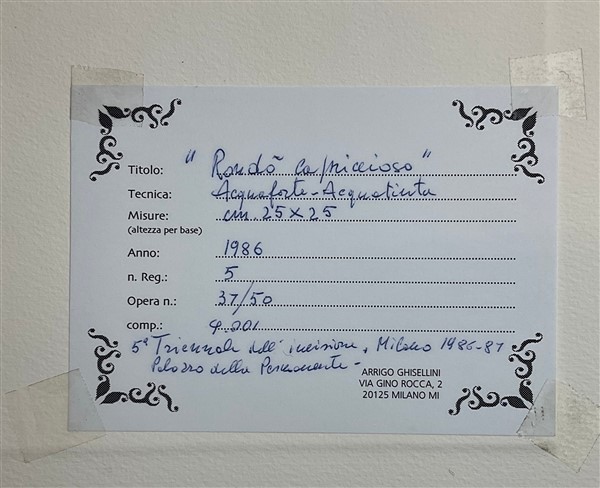 Titolo: "Rondò capriccioso"
Tecnica: Acquaforte-Acquatinta
Misure: cm. 25x25
(altezza per base)
Anno: 1986
n. Reg.: 5
Opera n.: 37/50
comp.: 4.201
5ª Triennale dell'incisione, Milano 1986-87
Palazzo della Permanente-
ARRIGO GHISELLINI
VIA GINO ROCCA, 2
20125 MILANO MI